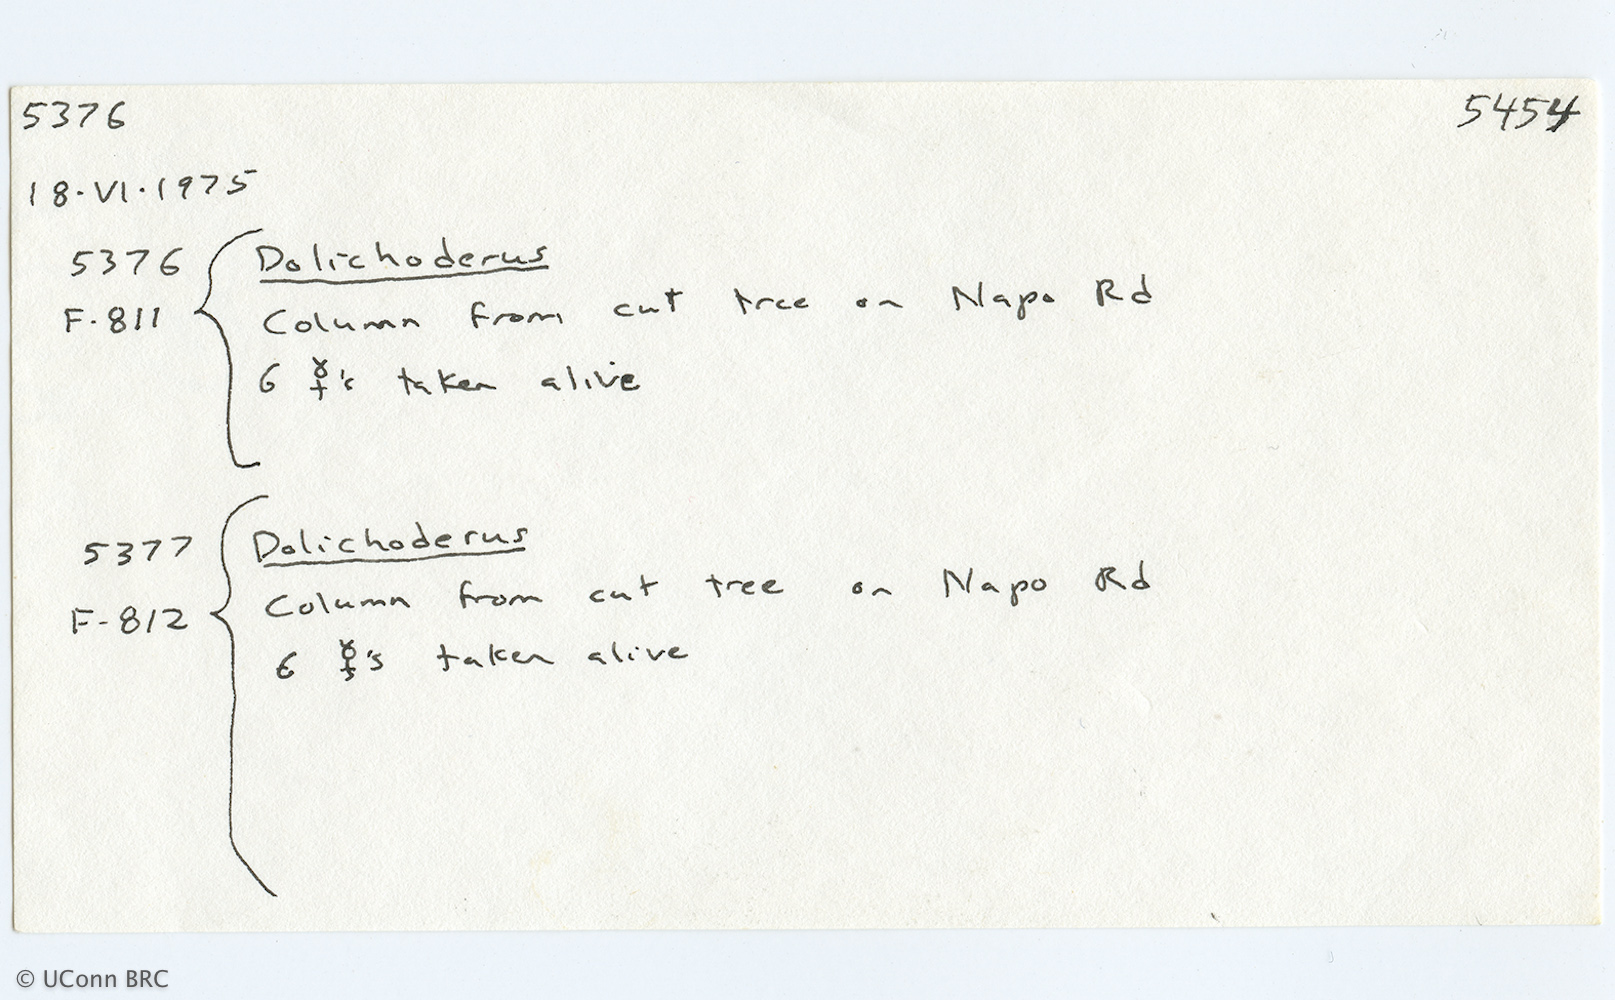 5376 5454
18·VI·1975
5376 Dolichoderus
F-811 Column from cut tree on Napo Rd
6 ☿'s taken alive
5377 Dolichoderus
F-812 Column from cut tree on Napo Rd
6 ☿'s taken alive
© UConn BRC